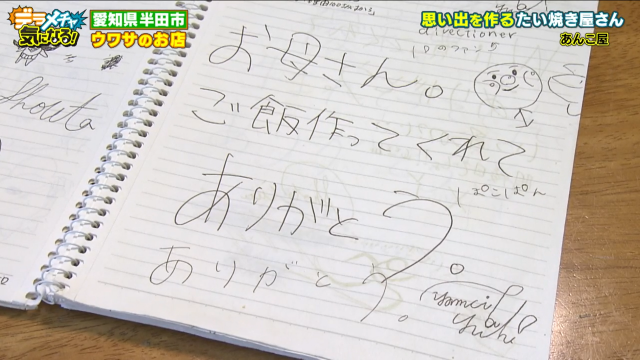 デラメチャ
気になる!
愛知県半田市
ウワサのお店
思い出を作るたい焼き屋さん
あんこ屋
directioner
1Dのファン
Shouta
お母さん。
ご飯作ってくれて
ぱこぱん
ありがとう。
ありがとう。